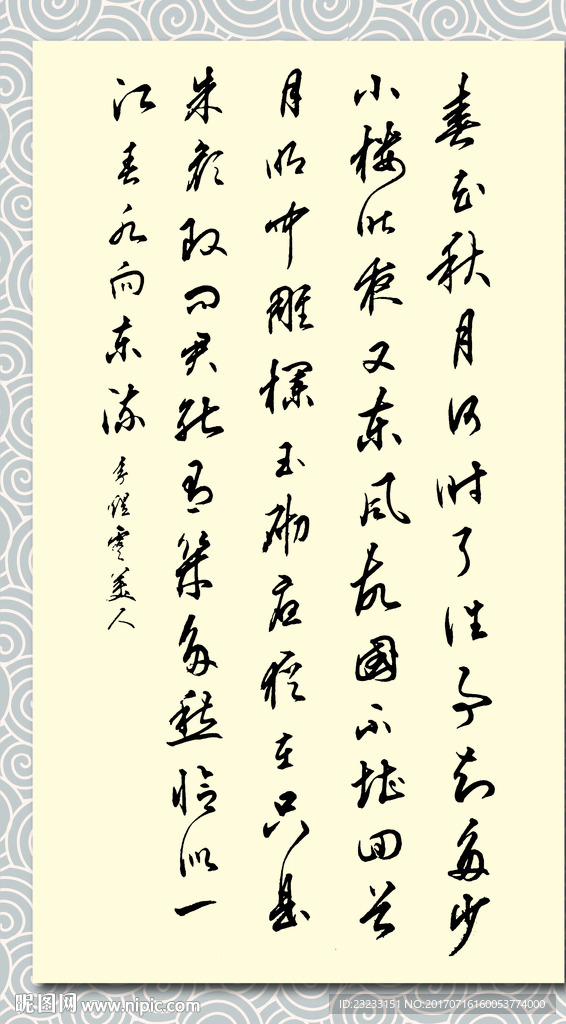 春花秋月何时了往事知多少
小楼昨夜又东风故國不堪回首
月明中雕欄玉砌应犹在只是
朱颜改问君能有幾多愁恰似一
江春水向东流 李煜虞美人
昵图网 www.nipic.com
ID:23233151 NO:20170716160053774000